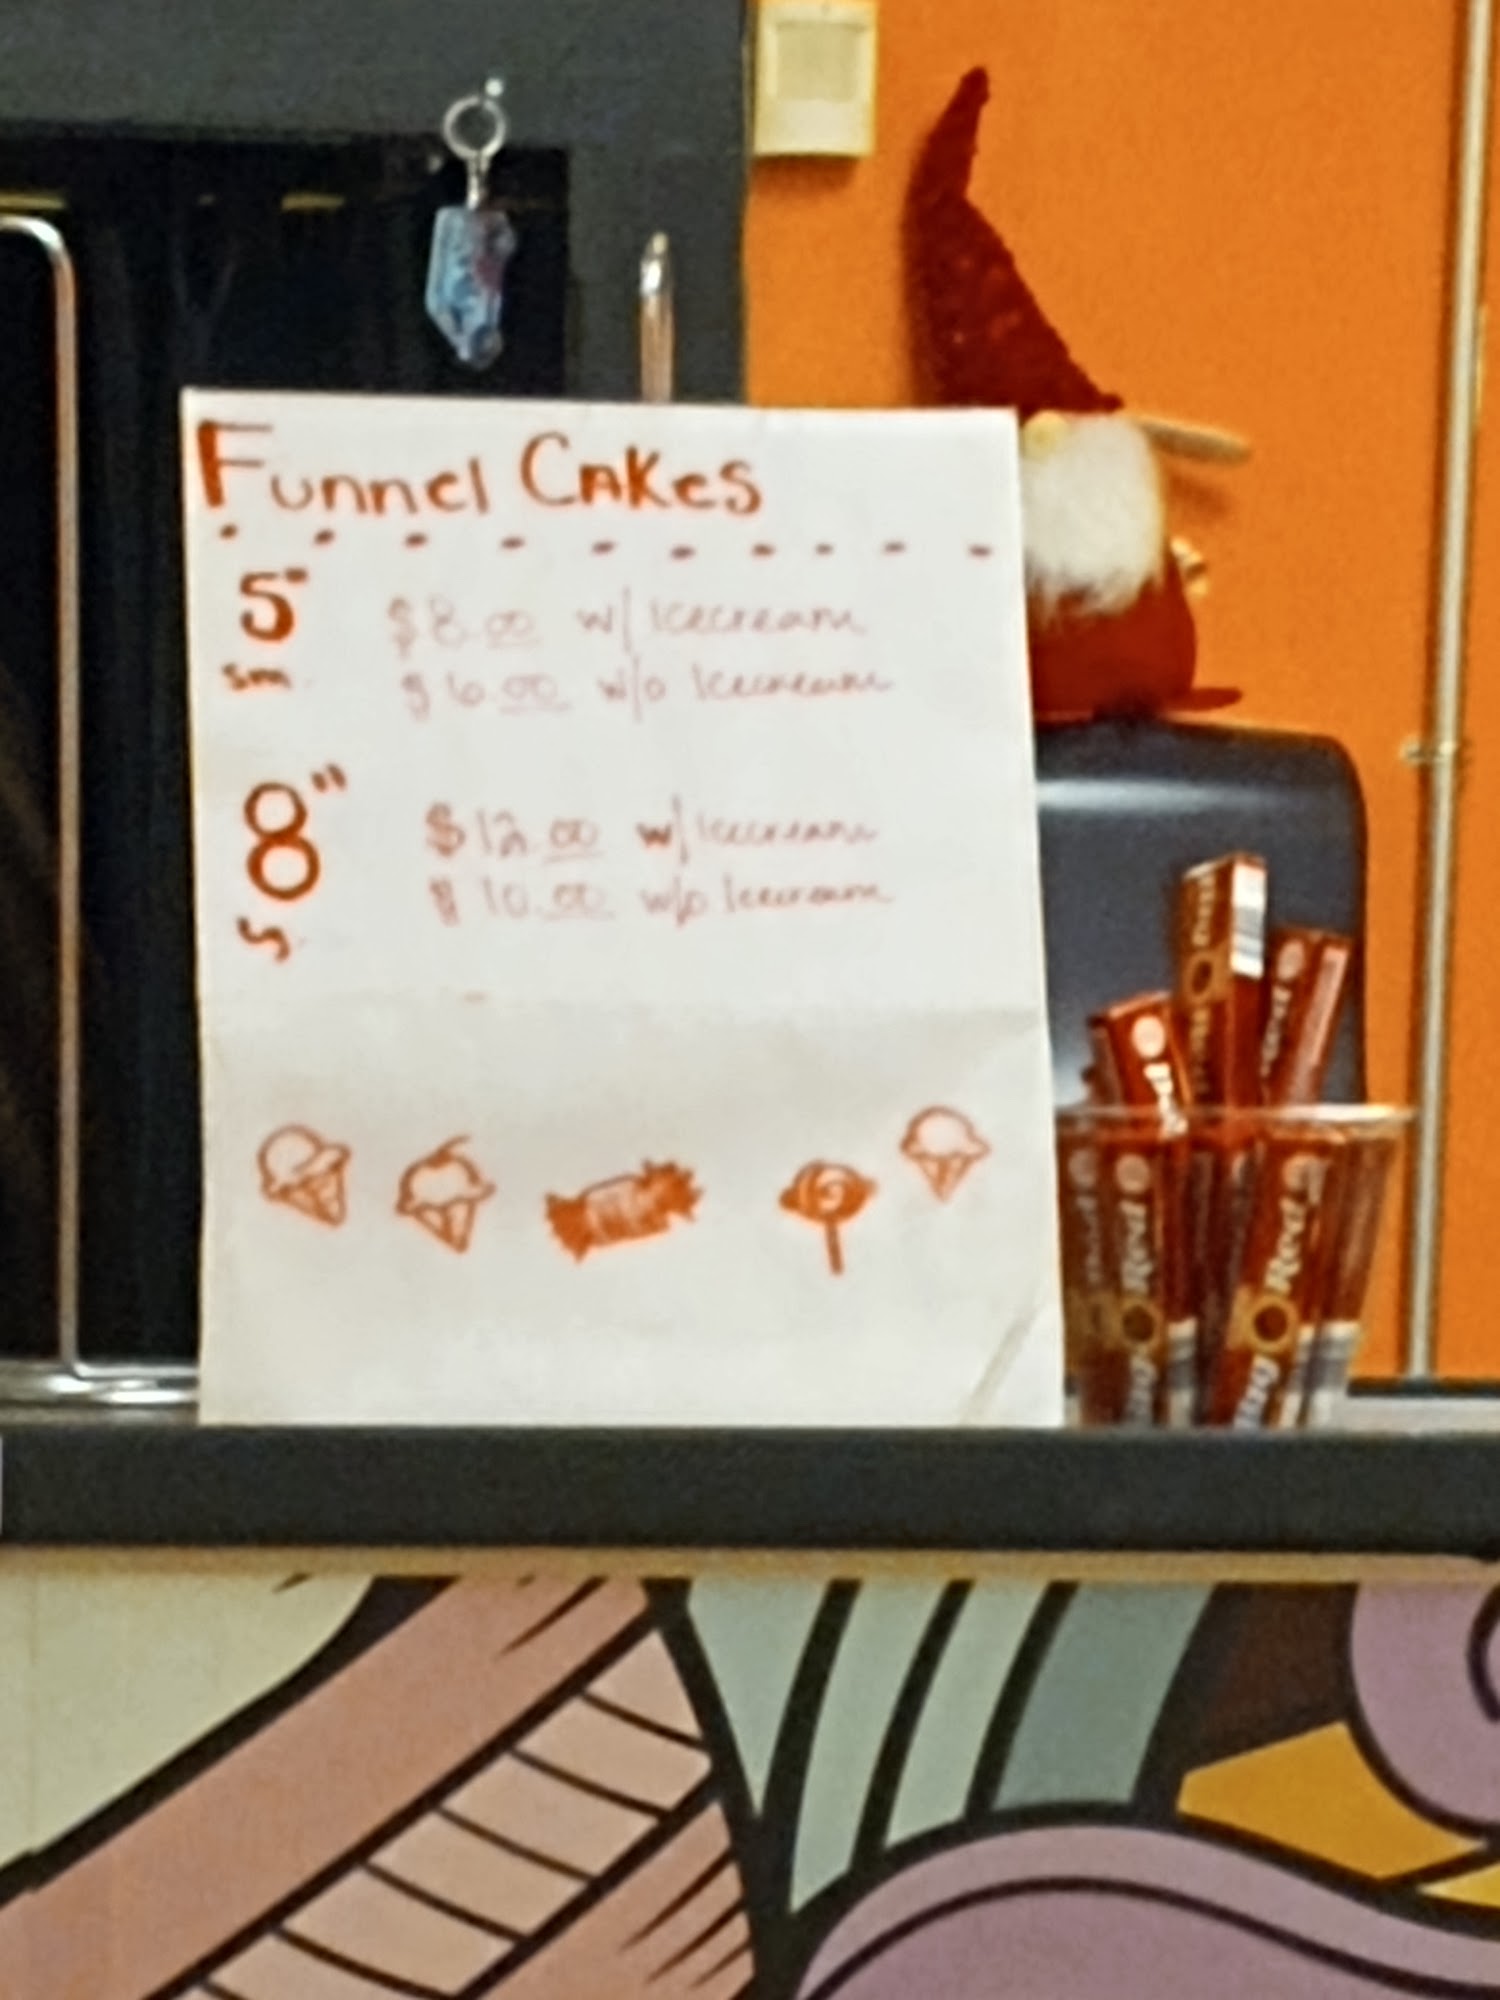 Funnel Cakes
5"
$8.00 w/ Icecream
sm.
$6.00 w/o Icecream
8"
$12.00 w/ Icecream
$10.00 w/o Icecream
Big Red
Big Red